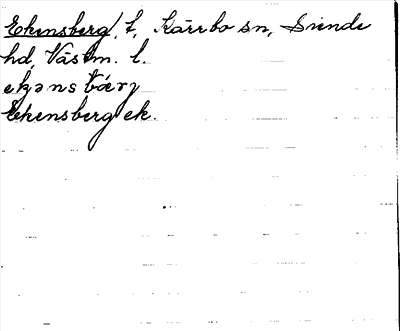 Ekensberg, t, Kärrbo sn, Siende
hd, Västm. l.
ekənsbærj
Ekensberg ek.